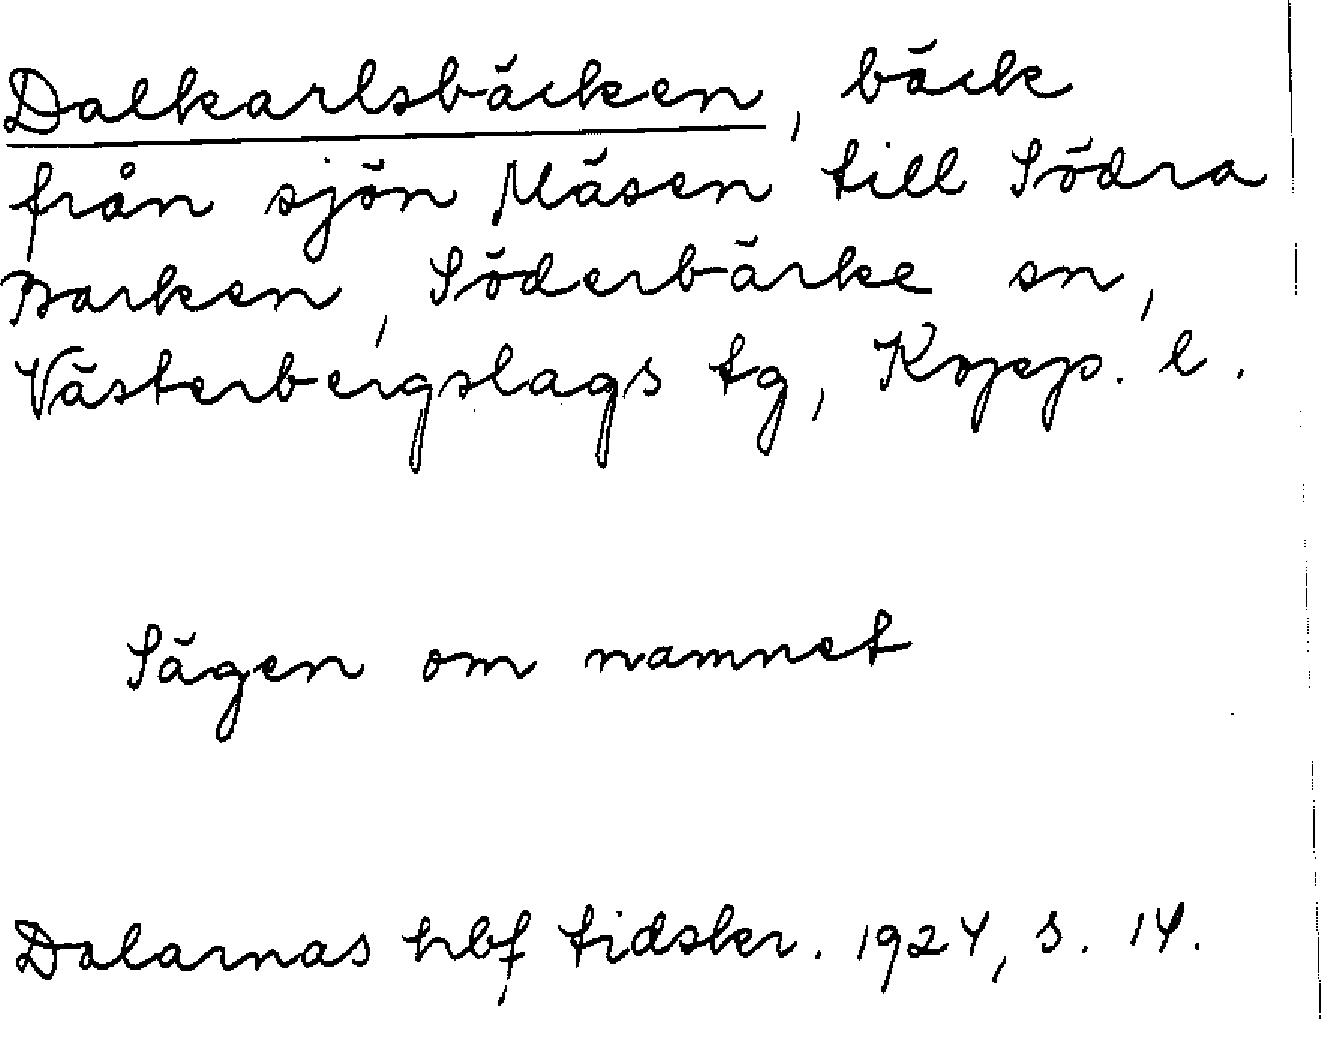 Dalkarlsbäcken, bäck
från sjön Mäsen till Södra
Barken, Söderbärke sn,
Västerbergslags tg, Kopp. l.
Sägen om namnet
Dalarnas hbf tidskr. 1924, s. 14.